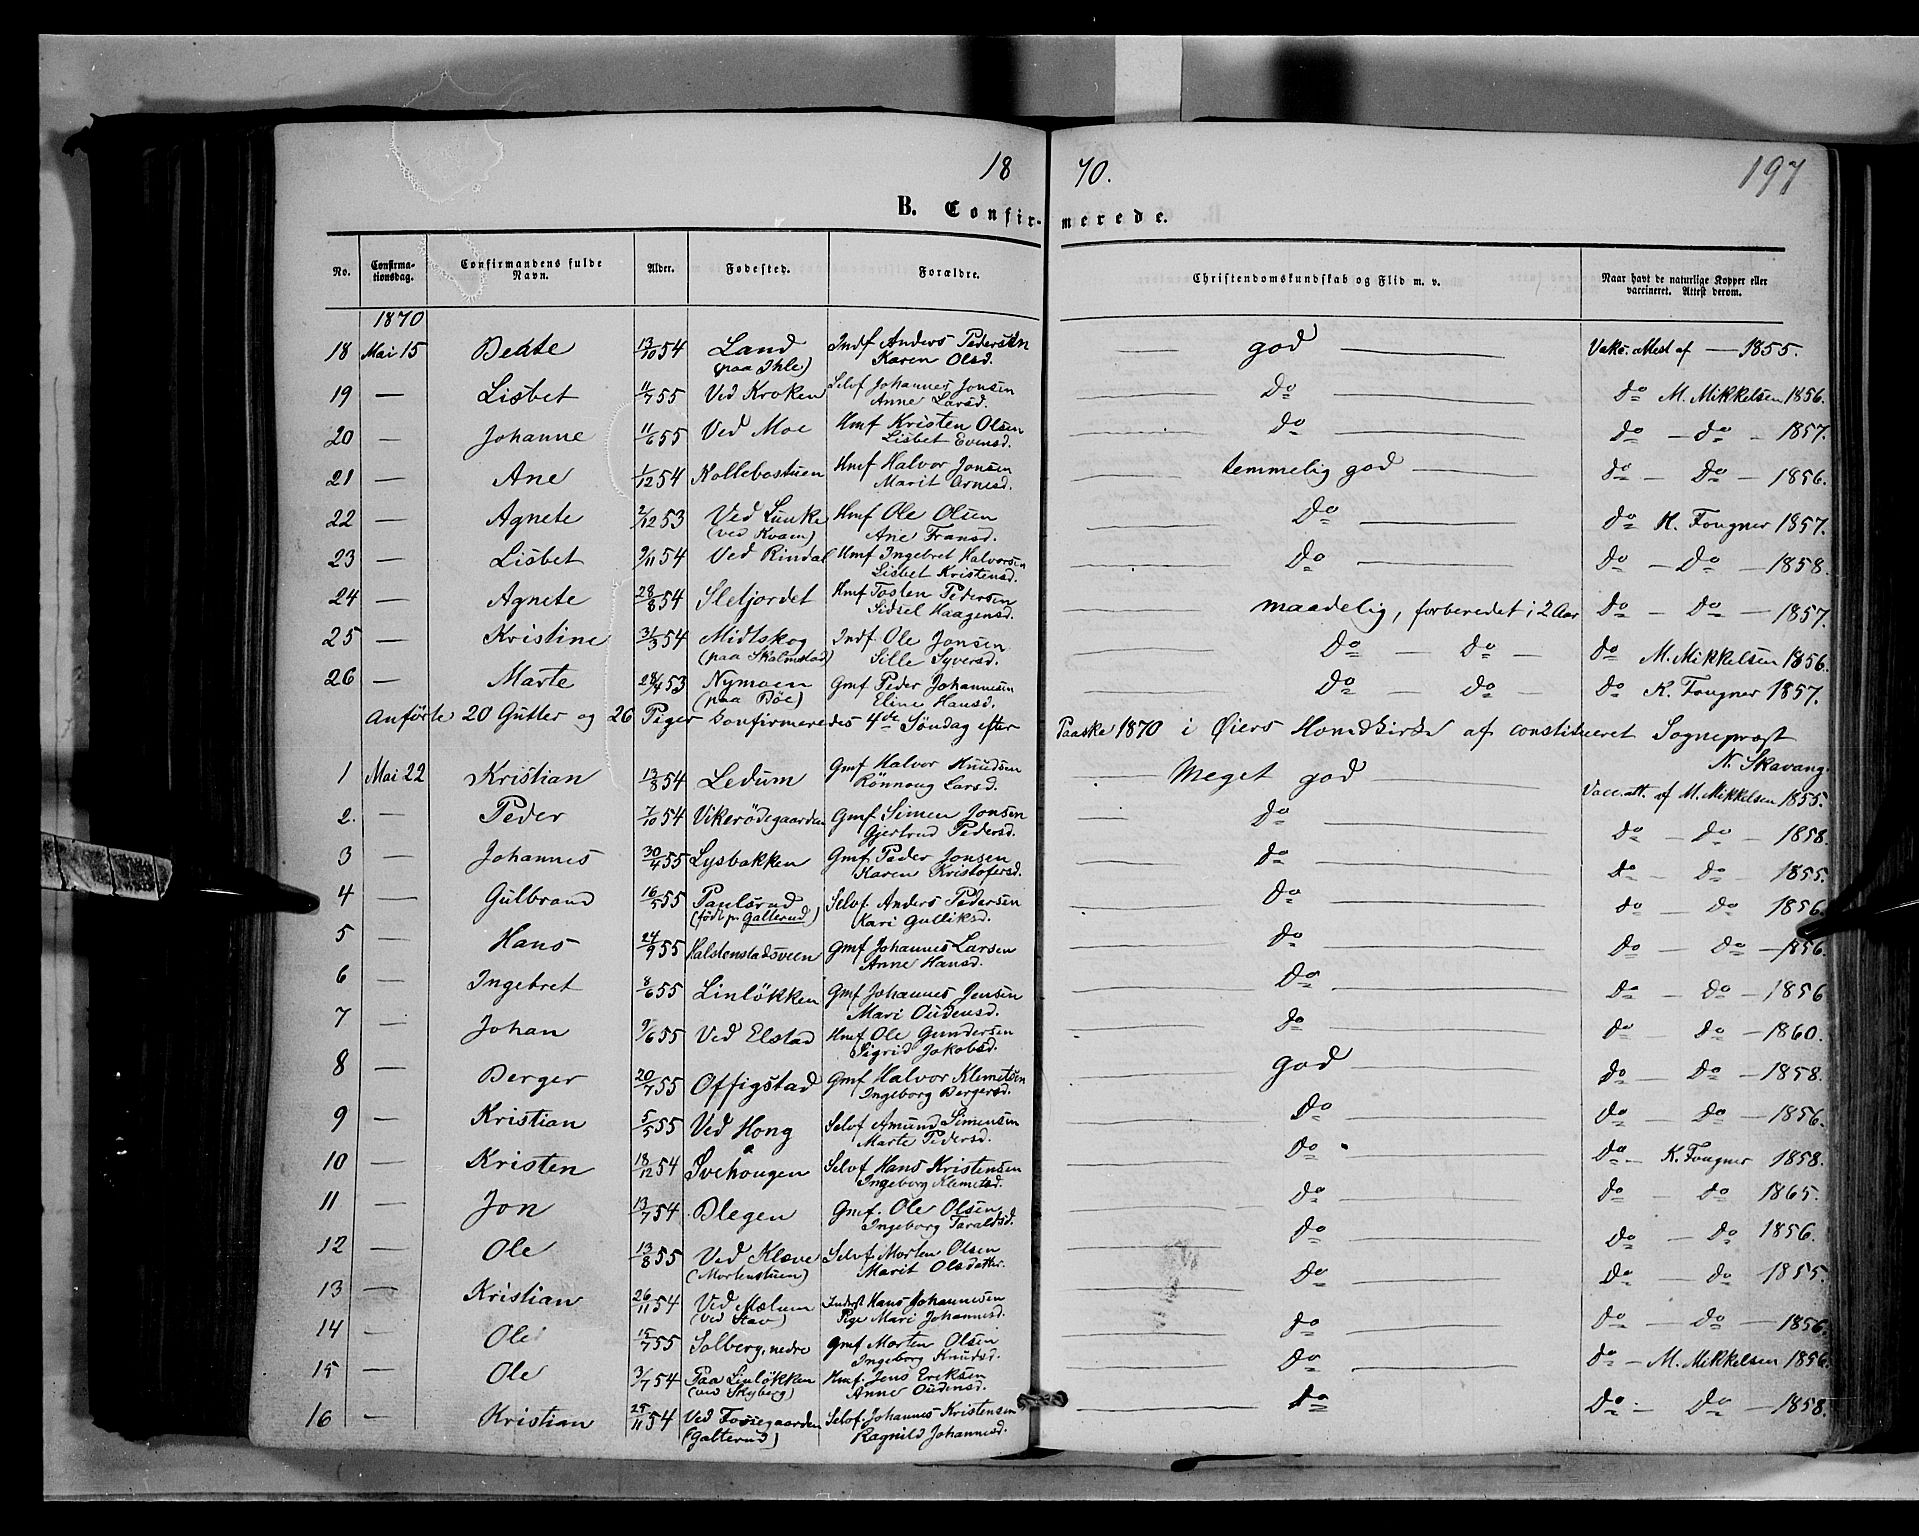 18 70. 197
B. Confirmerede.
No. Confirmationsdag. Confirmandens fulde Navn. Alder. Fødested. Forældre. Christendomskundskab og Flid m. v. Naar havt de naturlige Kopper eller vaccineret. Attest derom.
1870
18 Mai 15 Beate 13/10 54 Land (paa Ihle) Inds Anders Pedersen Karen Olsd. god Vaks. attest af — 1855.
19 — Lisbet 11/7 55 Ved Kroken Selvf Johannes Jonsen Anne Larsd. Do Do M. Mikkelsen 1856.
20 — Johanne 11/6 55 Ved Moe Hmf Kristen Olsen Lisbet Evensd. Do Do — Do — 1857.
21 — Ane 1/12 54 Kollebastuen Hmf Halvor Jonsen Marit Arnesd. temmelig god Do — Do — 1856.
22 — Agnete 2/12 53 Ved Lunke (ved Kvam) Hmf Ole Olsen Ane Fransd. Do Do K. Fougner 1857.
23 — Lisbet 9/11 54 Ved Rindal Hmf Ingebret Halvorsen Lisbet Kristensd. Do Do — Do — 1858.
24 — Agnete 28/8 54 Sletjordet Hmf Tosten Pedersen Sidsel Haagensd. maadelig, forberedet i 2 Aar Do — Do — 1857.
25 — Kristine 31/3 54 Midtskog (paa Skalmstad) Inds. Ole Jonsen Sille Syversd. Do — Do — Do M. Mikkelsen 1856.
26 — Marte 28/4 53 Nymoen (paa Bøe) Gmf Peder Johannesen Eline Hansd. Do — Do — Do K. Fougner 1857.
Anførte 20 Gutter og 26 Piger konfirmeredes 4de Søndag efter Paaske 1870 i Øiers Hovedkirke af constitueret Sognepræst
N. Skavang.
1 Mai 22 Kristian 13/8 54 Ledum Gmf Halvor Knudsen Rönnoug Larsd. Meget god Vacc. att. af M. Mikkelsen 1855.
2. — Peder 7/10 54 Vikerødegaarden Gmf Simen Jonsen Gjertrud Pedersd. Do Do — Do — 1858.
3 — Johannes 30/4 55 Lysbakken Gmf Peder Jonsen Karen Kristofersd. Do Do — Do — 1855.
4 — Gulbrand 16/5 55 Paulsrud (født p. Galterud) Selvf. Anders Pedersen Kari Gulliksd. Do Do — Do 1856.
5 — Hans 24/9 55 Halstenstadsveen Gmf Johannes Larsen Anne Hansd. Do Do — Do — 1856.
6 — Ingebret 8/6 55 Linløkken Gmf Johannes Jensen Mari Oudensd. Do Do — Do — 1856
7 — Johan 9/6 55 Ved Elstad Hmf Ole Gundersen Sigrid Jakobsd. Do Do — Do — 1860.
8 — Berger 20/7 55 Offigstad Gmf Halvor Klemetsen Ingeborg Bergersd. God Do — Do — 1858.
9 — Kristian 5/5 55 Ved Hong Selvf Amund Simensen Marte Pedersd. Do Do — Do — 1856.
10 — Kristen 18/12 54 Svehaugen Selvf Hans Kristensen Ingeborg Klemetsd. Do Do — K. Fougner 1858.
11 — Jon 13/7 54 Blegen Gmf. Ole Olsen Ingeborg Taraldsd. Do Do — Do 1865.
12 — Ole 13/8 55 Ved Klæve (Mortenstuen) Selvf Morten Olsen Marit Olsdatter. Do Do — Do 1856.
13 — Kristian 26/11 54 Ved Mælum (ved Stav) Inderst Hans Johannesen Pige Mari Johannesd. Do Do — do 1855.
14 — Ole 15/7 55 Solberg, nedre Gmf Morten Olsen Ingeborg Knudsd. Do Do — Do — 1856.
15 — Ole 3/7 54 Paa Linløkken (ved Skyberg) Hmf. Jens Eriksen Anne Oudensd. Do Do — M. Mikkelsen 1856.
16 — Kristian 25/11 54 Ved Fossegaarden (Galterud) Selvf. Johannes Kristensen Ragnild Johannesd. Do Do — Do — 1858.